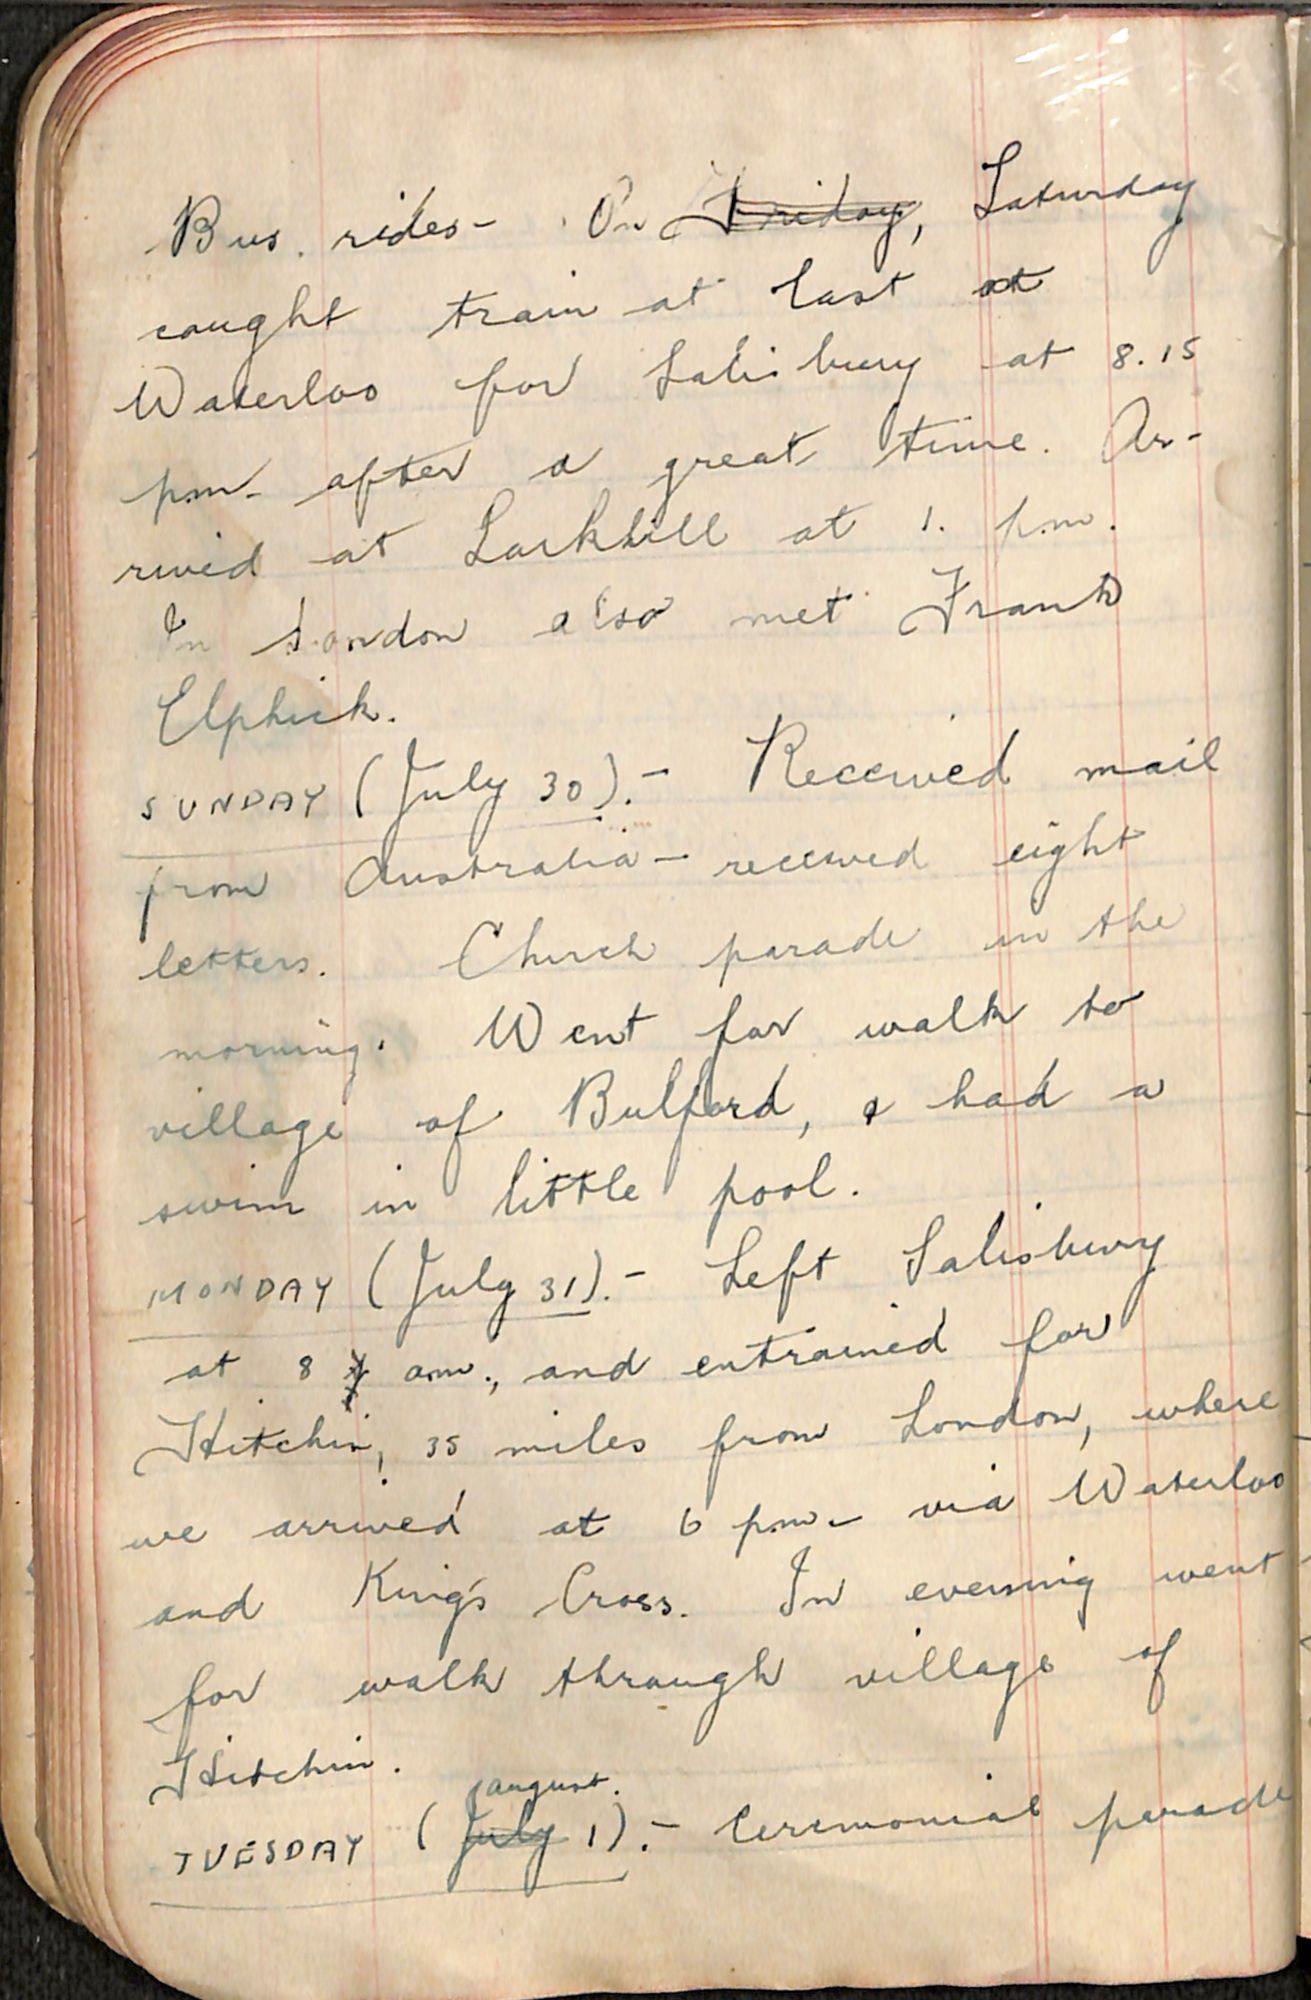 Bus. rides - On Friday, Saturday
caught train at last at
Waterloo for Salisbury at 8.15
p.m. after a great time. Ar-
rived at Larkhill at 1. p.m.
In London also met Frank
Elphick.
SUNDAY (July 30).- Received mail
from Australia - received eight
letters. Church parade in the
morning. Went for walk to
village of Bulford, & had a
swim in little pool.
MONDAY (July 31).- Left Salisbury
at 8 am., and entrained for
Hitchin, 35 miles from London, where
we arrived at 6 p.m. - via Waterloo
and King's Cross. In evening went
for walk through village of
Hitchin.
august.
TUESDAY (July 1).- Ceremonial parade